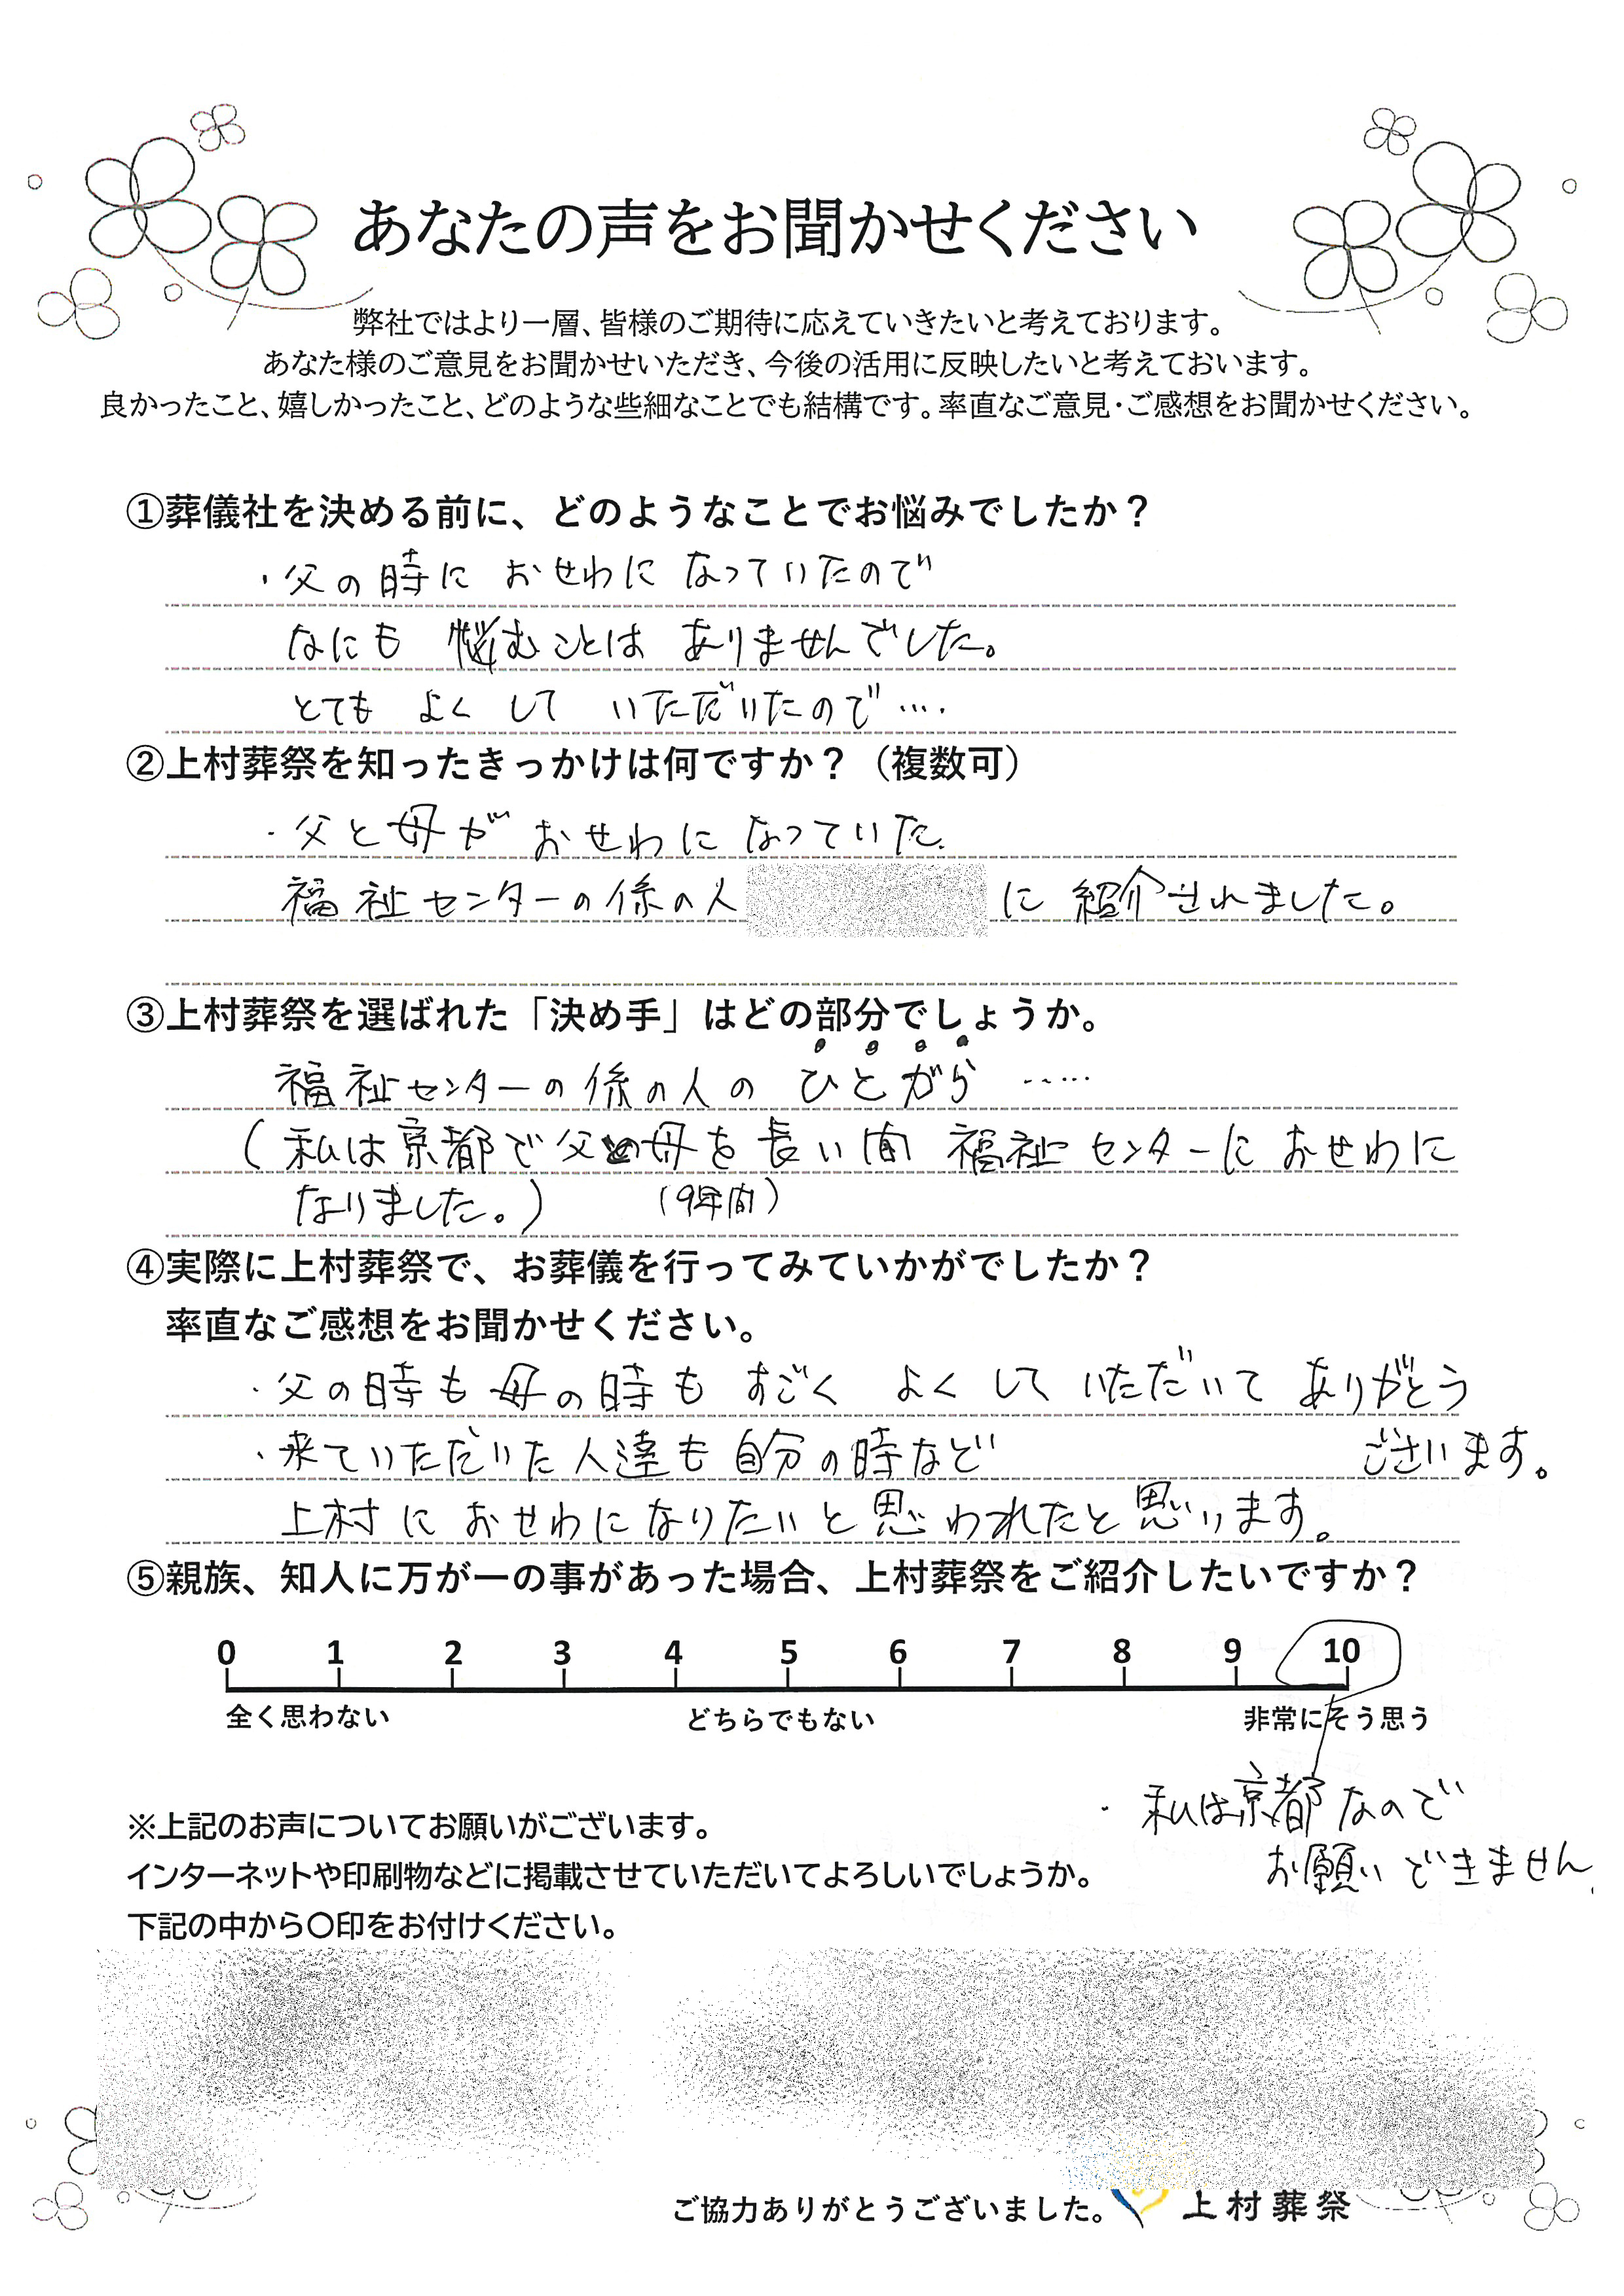 あなたの声をお聞かせください
弊社ではより一層、皆様のご期待に応えていきたいと考えております。
あなた様のご意見をお聞かせいただき、今後の活用に反映したいと考えておいます。
良かったこと、嬉しかったこと、どのような些細なことでも結構です。率直なご意見・ご感想をお聞かせください。
①葬儀社を決める前に、どのようなことでお悩みでしたか？
・父の時に おせわに なっていたので
なにも 悩むことは ありませんでした。
とても よく して いただいたので….
②上村葬祭を知ったきっかけは何ですか？（複数可）
・父と母が おせわに なっていた.
福祉センターの係の人 に 紹介されました。
③上村葬祭を選ばれた「決め手」はどの部分でしょうか。
福祉センターの係の人の ひとがら ……
(私は京都で父の母を長い間 福祉センターに おせわに
なりました。) (9年間)
④実際に上村葬祭で、お葬儀を行ってみていかがでしたか？
率直なご感想をお聞かせください。
・父の時も母の時も すごく よく して いただいて ありがとう
ございます。
・来ていただいた人達も自分の時など
上村に おせわになりたいと思われたと思います。
⑤親族、知人に万が一の事があった場合、上村葬祭をご紹介したいですか？
0 1 2 3 4 5 6 7 8 9 10
全く思わない どちらでもない 非常にそう思う
・私は京都なので
お願いできません.
※上記のお声についてお願いがございます。
インターネットや印刷物などに掲載させていただいてよろしいでしょうか。
下記の中から〇印をお付けください。
ご協力ありがとうございました。 上村葬祭